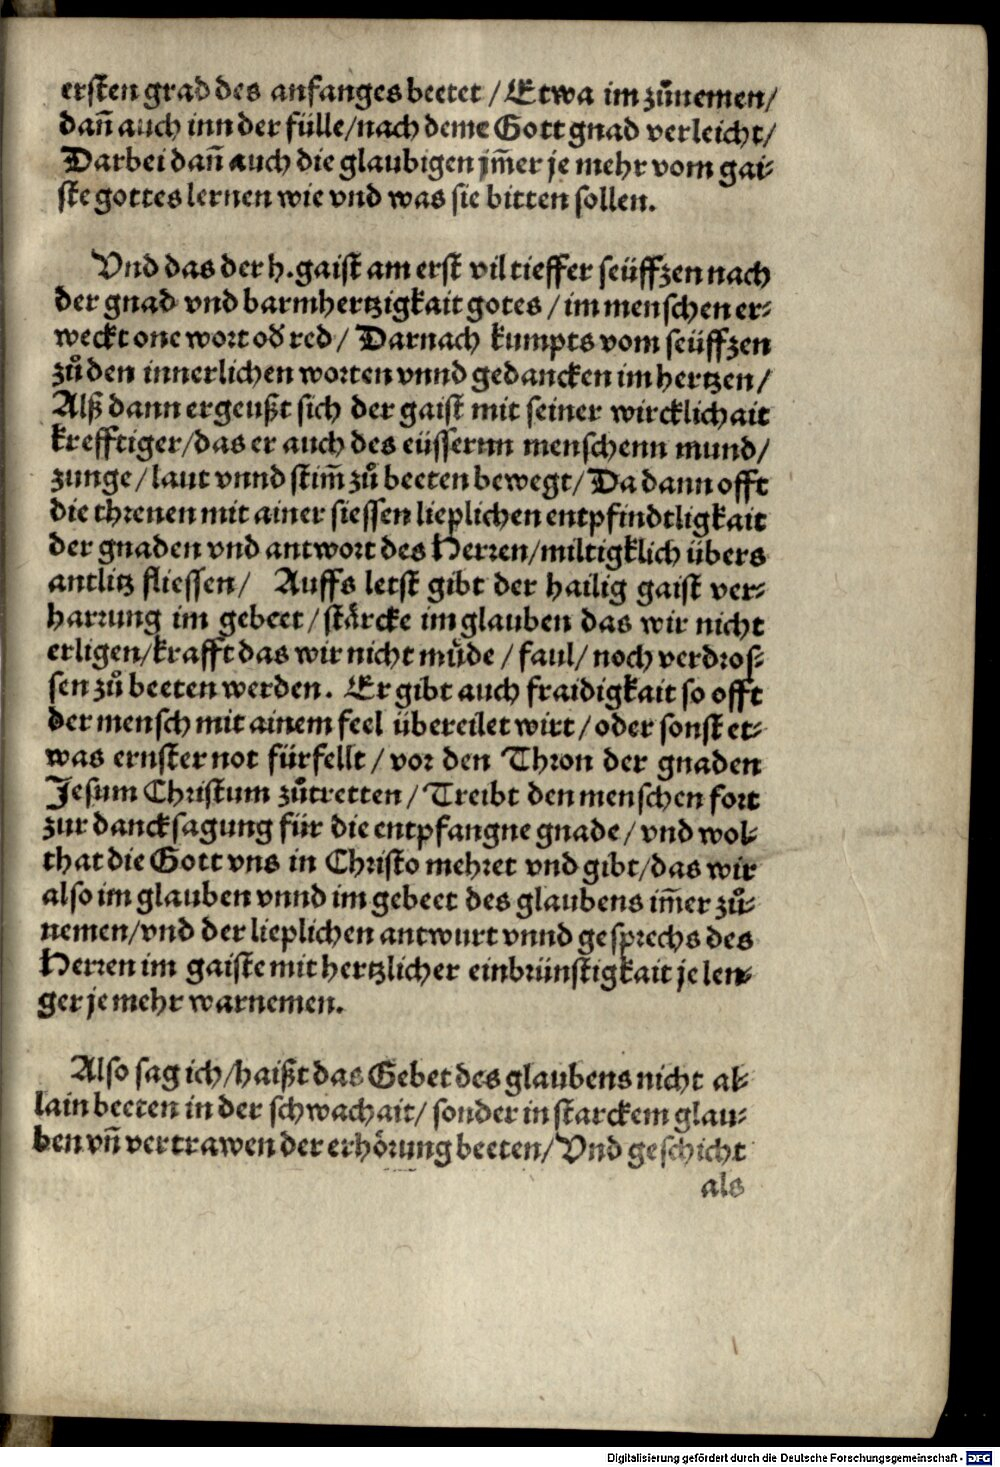 ersten grad des anfanges beetet / Etwa im zůnemen /
dañ auch inn der fülle / nach deme Gott gnad verleicht /
Darbei dañ auch die glaubigen jm̃er je mehr vom gai⸗
ste gottes lernen wie vnd was sie bitten sollen.
Vnd das der h. gaist am erst vil tieffer seüffzen nach
der gnad vnd barmhertzigkait gotes / im menschen er⸗
weckt one wort od̕ red / Darnach kumpts vom seüffzen
zů den innerlichen worten vnnd gedancken im hertzen /
Alß dann ergeußt sich der gaist mit seiner wircklichait
krefftiger / das er auch des eüssernn menschenn mund /
zunge / laut vnnd stim̃ zů beeten bewegt / Da dann offt
die threnen mit ainer siessen lieplichen entpfindtligkait
der gnaden vnd antwort des Herren / miltigklich übers
antlitz fliessen / Auffs letst gibt der hailig gaist ver⸗
harrung im gebeet / stärcke im glauben das wir nicht
erligen / krafft das wir nicht můde / faul / noch verdros⸗
sen zů beeten werden. Er gibt auch fraidigkait so offt
der mensch mit ainem feel übereilet wirt / oder sonst et⸗
was ernster not fürfellt / vor den Thron der gnaden
Jesum Christum zůtretten / Treibt den menschen fort
zur dancksagung für die entpfangne gnade / vnd wol⸗
that die Gott vns in Christo mehret vnd gibt / das wir
also im glauben vnnd im gebeet des glaubens im̃er zů⸗
nemen / vnd der lieplichen antwurt vnnd gesprechs des
Herren im gaiste mit hertzlicher einbrünstigkait je len⸗
ger je mehr warnemen.
Also sag ich / haißt das Gebet des glaubens nicht al⸗
lain beeten in der schwachait / sonder in starckem glau⸗
ben vñ vertrawen der erhörung beeten / Vnd geschicht
als
Digitalisierung gefördert durch die Deutsche Forschungsgemeinschaft - DFG